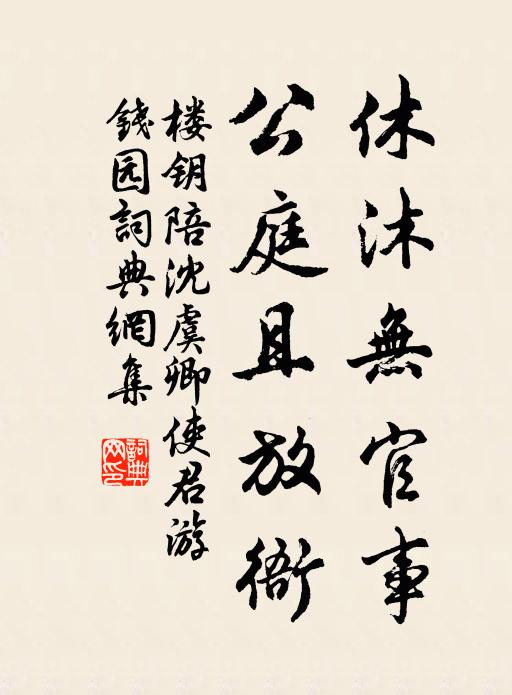 休沐無官事
公庭且放衙
楼钥陪沈虞卿使君游
錢园詞典網集
詞典網印